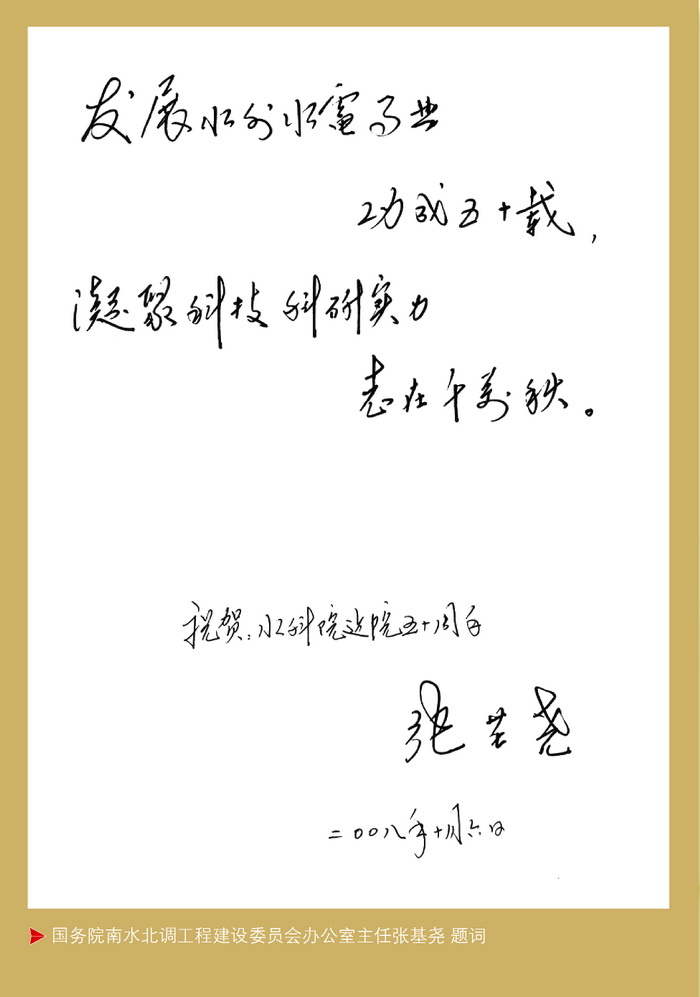 发展水利水電事业
功成五十载，
凝聚科技科研实力
志在千万秋。
祝贺：水科院建院五十周年
张基尧
二〇〇八年十月六日
国务院南水北调工程建设委员会办公室主任张基尧 题词